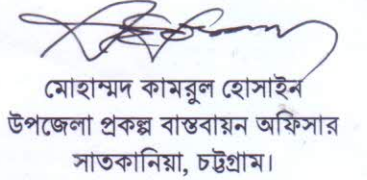 মোহাম্মদ কামরুল হোসাইন
উপজেলা প্রকল্প বাস্তবায়ন অফিসার
সাতকানিয়া, চট্টগ্রাম।